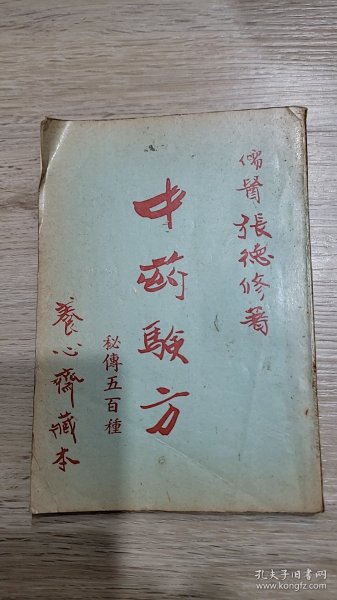 儒醫張德修著
中药験方
秘傳五百種
養心齋藏本
孔夫子旧书网